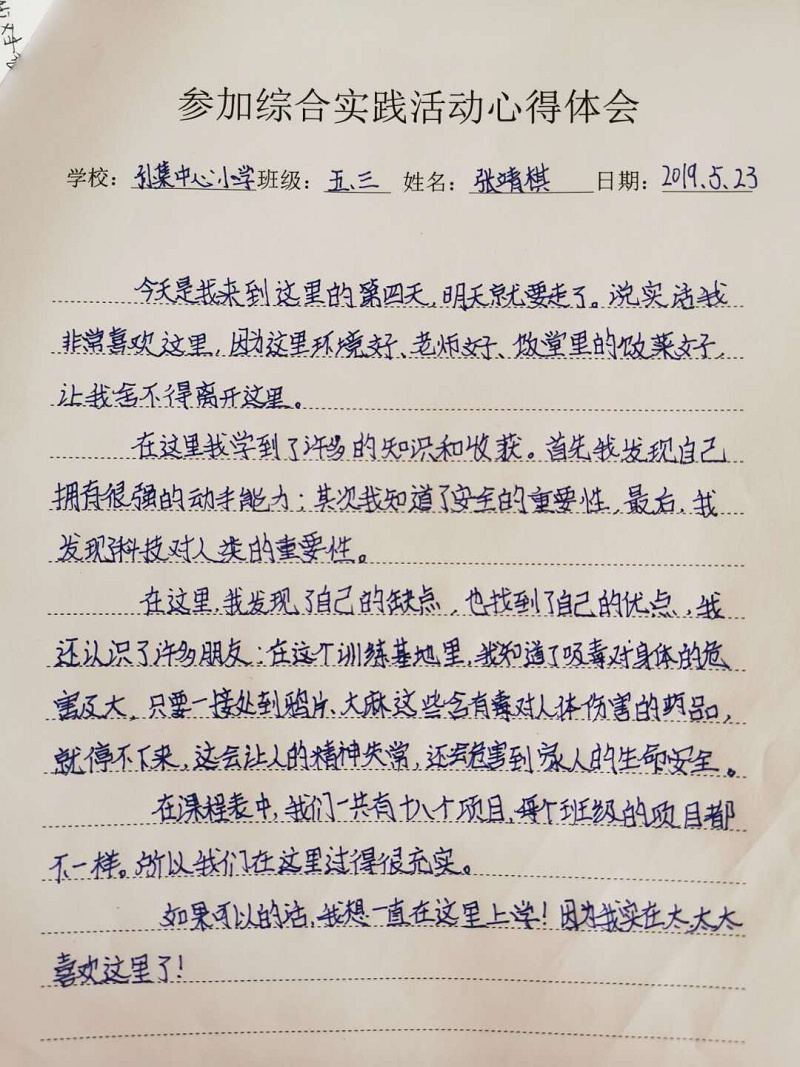 参加综合实践活动心得体会
学校：孔集中心小学 班级：五、三 姓名：张靖棋 日期：2019.5.23
今天是我来到这里的第四天，明天就要走了。说实话我
非常喜欢这里，因为这里环境好、老师好、饭堂里的饭菜好，
让我舍不得离开这里。
在这里我学到了许多的知识和收获。首先我发现自己
拥有很强的动手能力；其次我知道了安全的重要性，最后，我
发现了科技对人类的重要性。
在这里，我发现了自己的缺点，也找到了自己的优点，我
还认识了许多朋友；在这个训练基地里，我知道了吸毒对身体的危
害及大，只要一接处到鸦片、大麻这些含有毒对人体伤害的药品，
就停不下来，这会让人的精神失常，还会危害到家人的生命安全。
在课程表中，我们一共有十八个项目，每个班级的项目都
不一样。所以我们在这里过得很充实。
如果可以的话，我想一直在这里上学！因为我实在太太太
喜欢这里了！